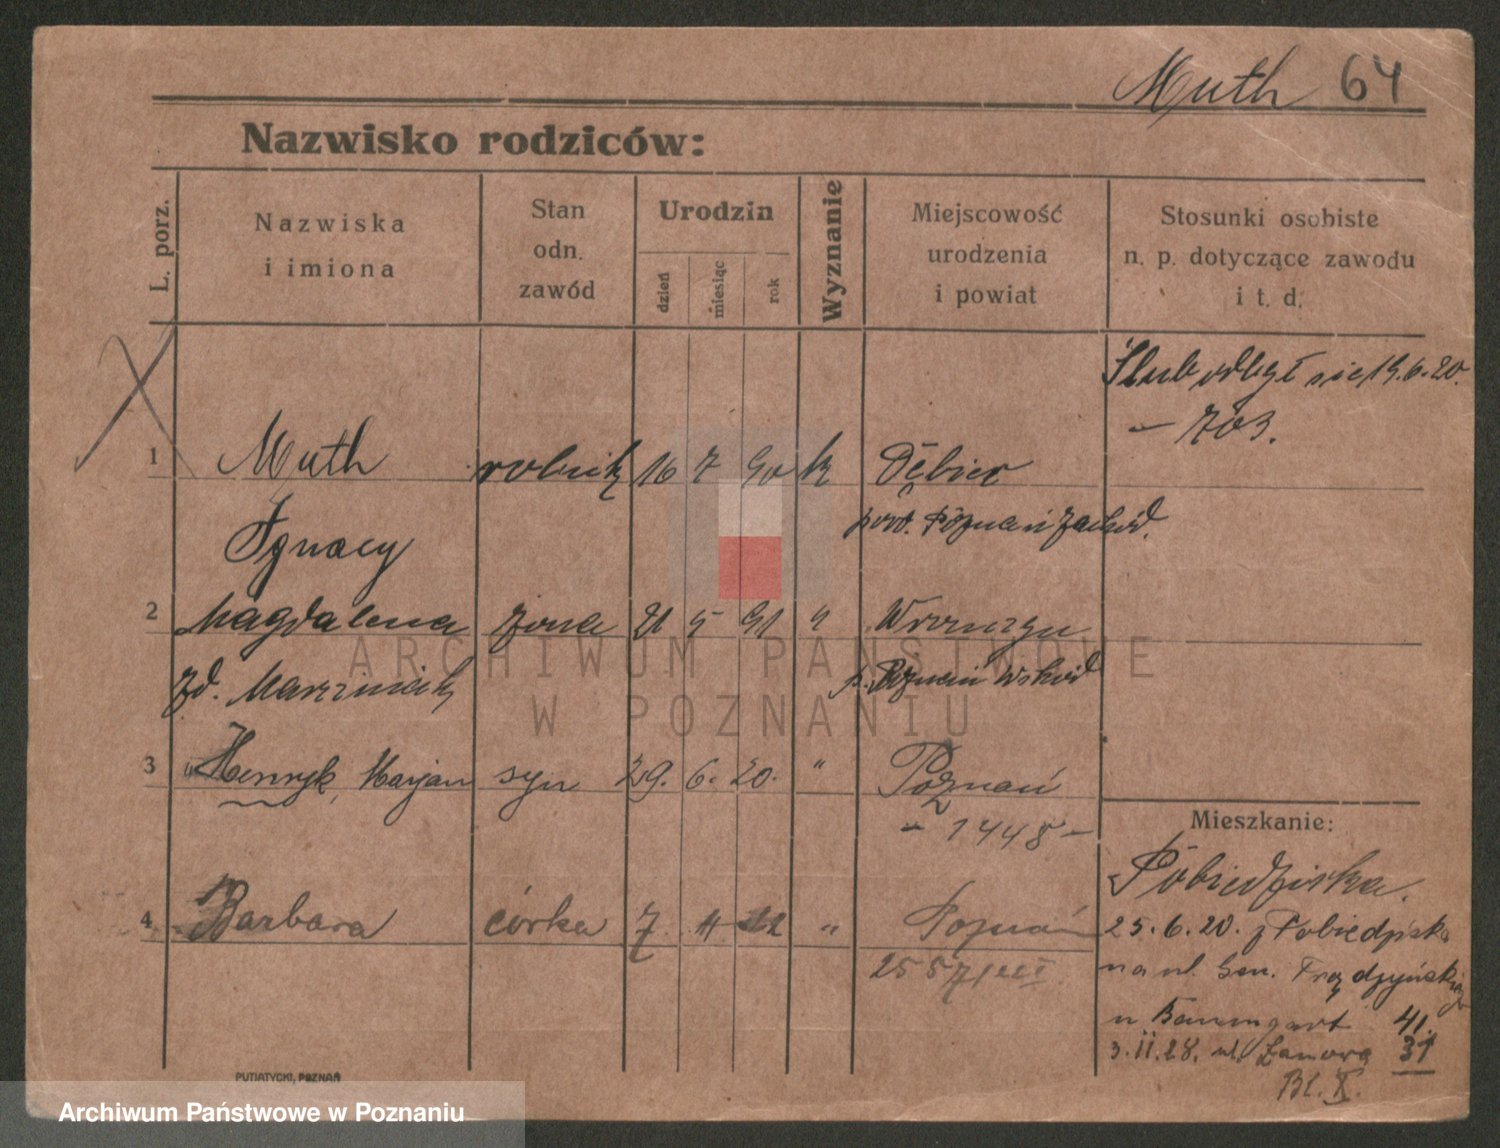 Muth 64
Nazwisko rodziców:
L. porz.
Nazwiska i imiona
Stan odn. zawód
Urodzin
dzień miesiąc rok
Wyznanie
Miejscowość urodzenia i powiat
Stosunki osobiste n. p. dotyczące zawodu i t. d.
Ślub odbył sie 19.6.20.
- 703.
1 Muth robnik 16 7 90 k Dębiec
Ignacy pow. Poznań zachód.
2 Magdalena żona 21 5 91 "
zd. Marciniak p. Poznań Wschód
3 Henryk, Marjan syn 29. 6. 20. " Poznań
- 1448 -
4 Barbara córka 7 11 22 " Poznań
2557/22 I
Mieszkanie:
Pobiedziska.
25.6.20. z Pobiedziska
na ul. Gen. Prądzyńskiego
u Baumgart 41.
3.II.28. ul. Łanowa 31
Bl. X.
PUTIATYCKI, POZNAŃ
ARCHIWUM PAŃSTWOWE
W POZNANIU
Archiwum Państwowe w Poznaniu